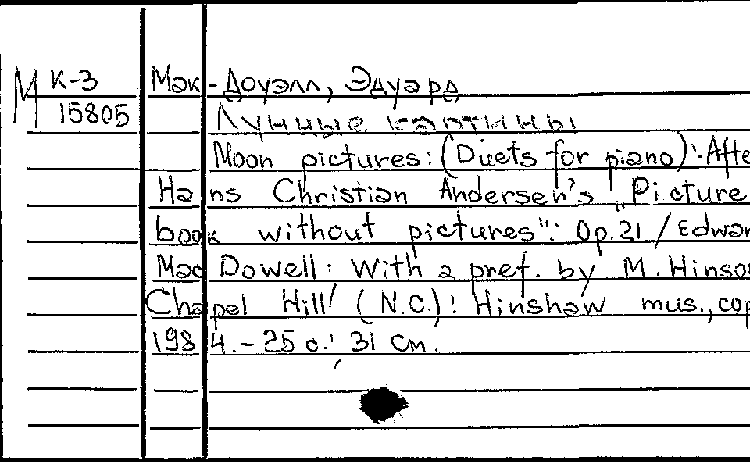 М К-3 Мак-Доуэлл, Эдуард
15805 Лунные картины
Moon pictures: (Duets for piano): Afte
Hans Christian Andersen's "Picture
book without pictures": Op.21 / Edwar
Mac Dowell: With a pref. by M. Hinso
Chapel Hill (N.C.): Hinshaw mus., cop
1984. - 25 с.; 31 см.